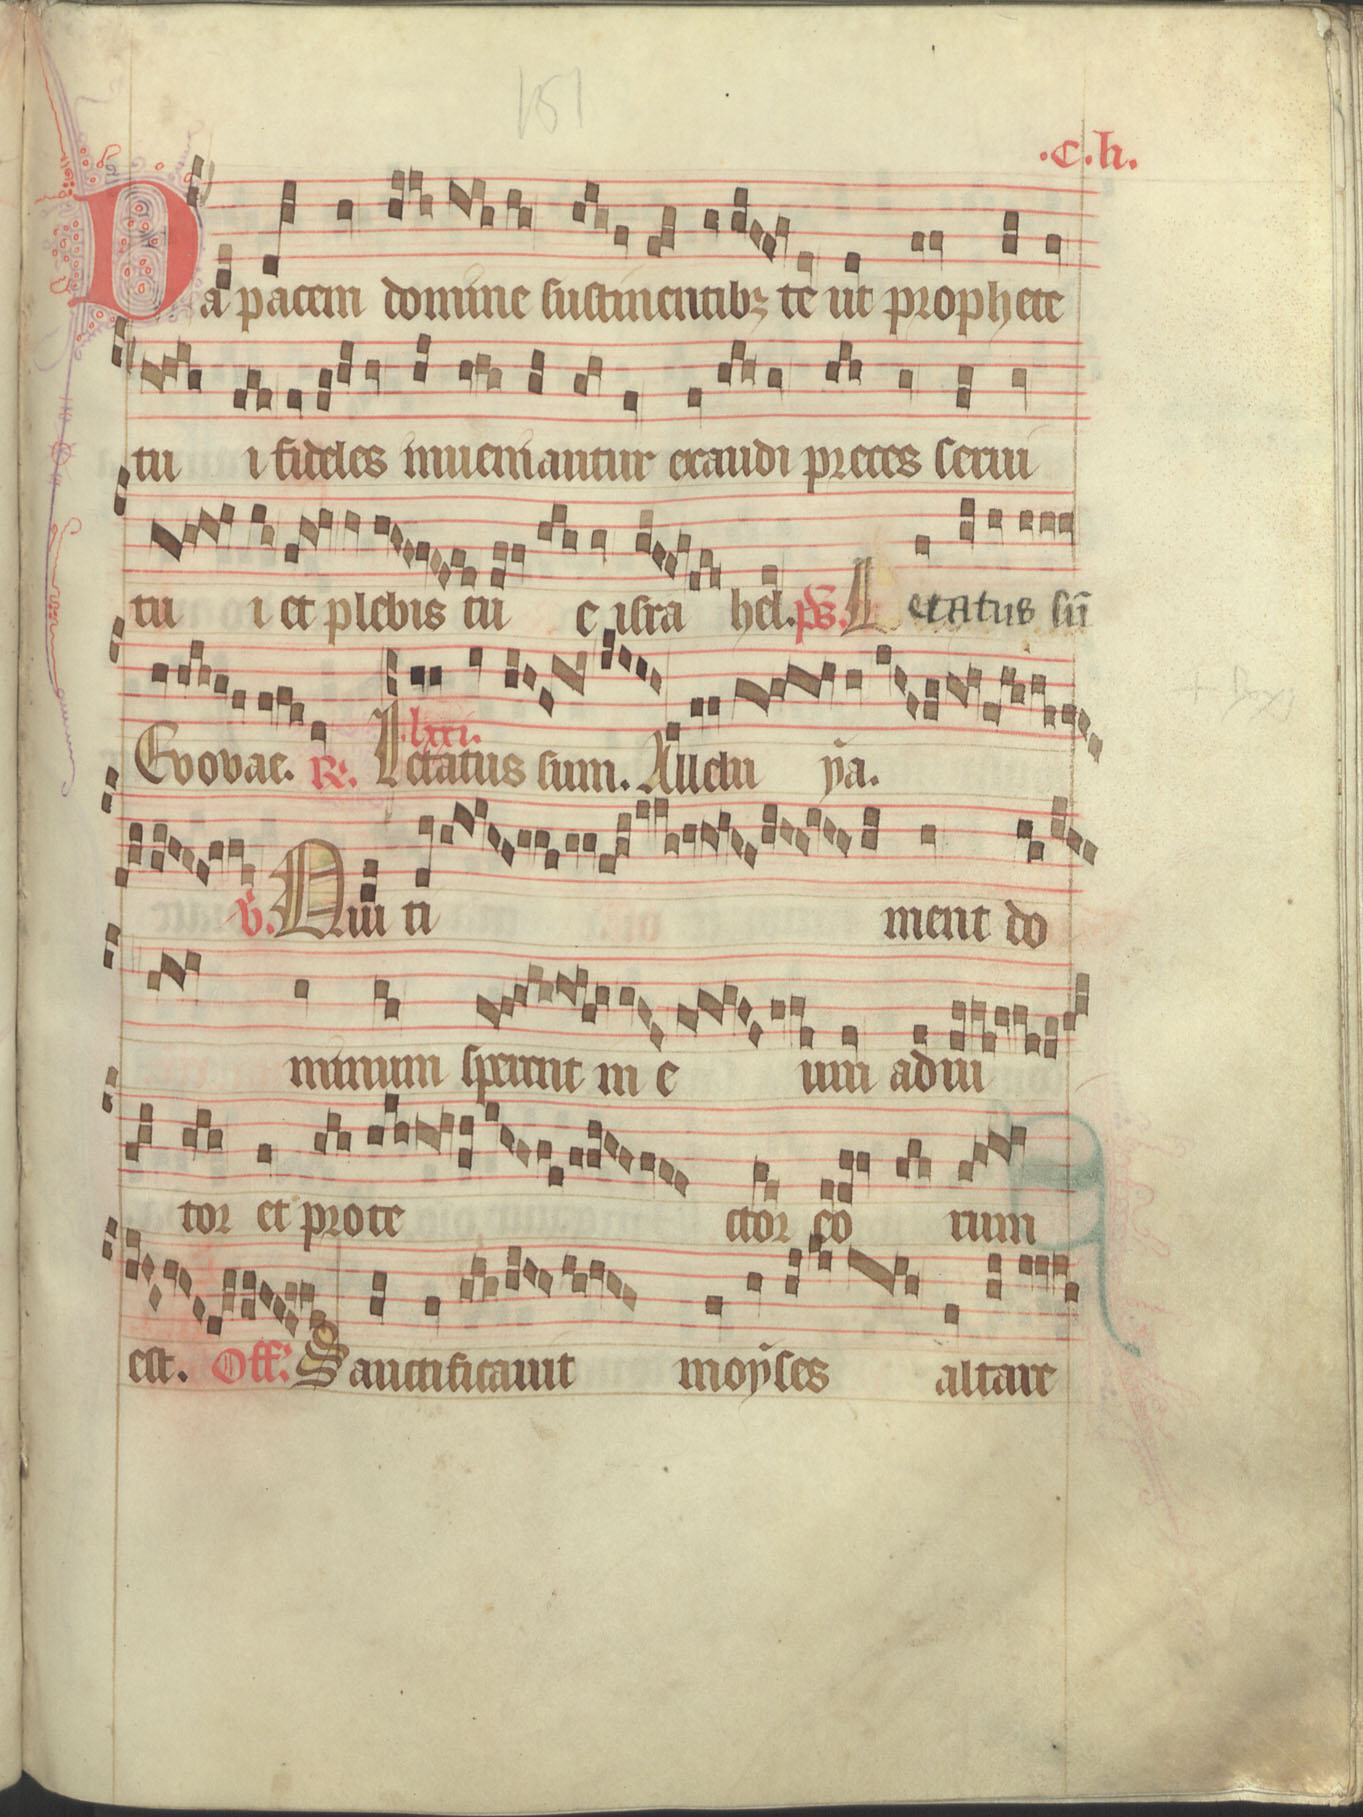 151
.c.li.
Da pacem domine sustinentibꝫ te ut prophete
tu i fideles inueniantur exaudi preces serui
tu i et plebis tu e isra hel. ps. Letatus sū
Evovae. R. lxxi. Letatus sum. Alleluya.
V. Qui ti ment do
minum sperent in e um adiu
tor et prote ctor eo rum
est. Off. Sanctificauit moyses altare